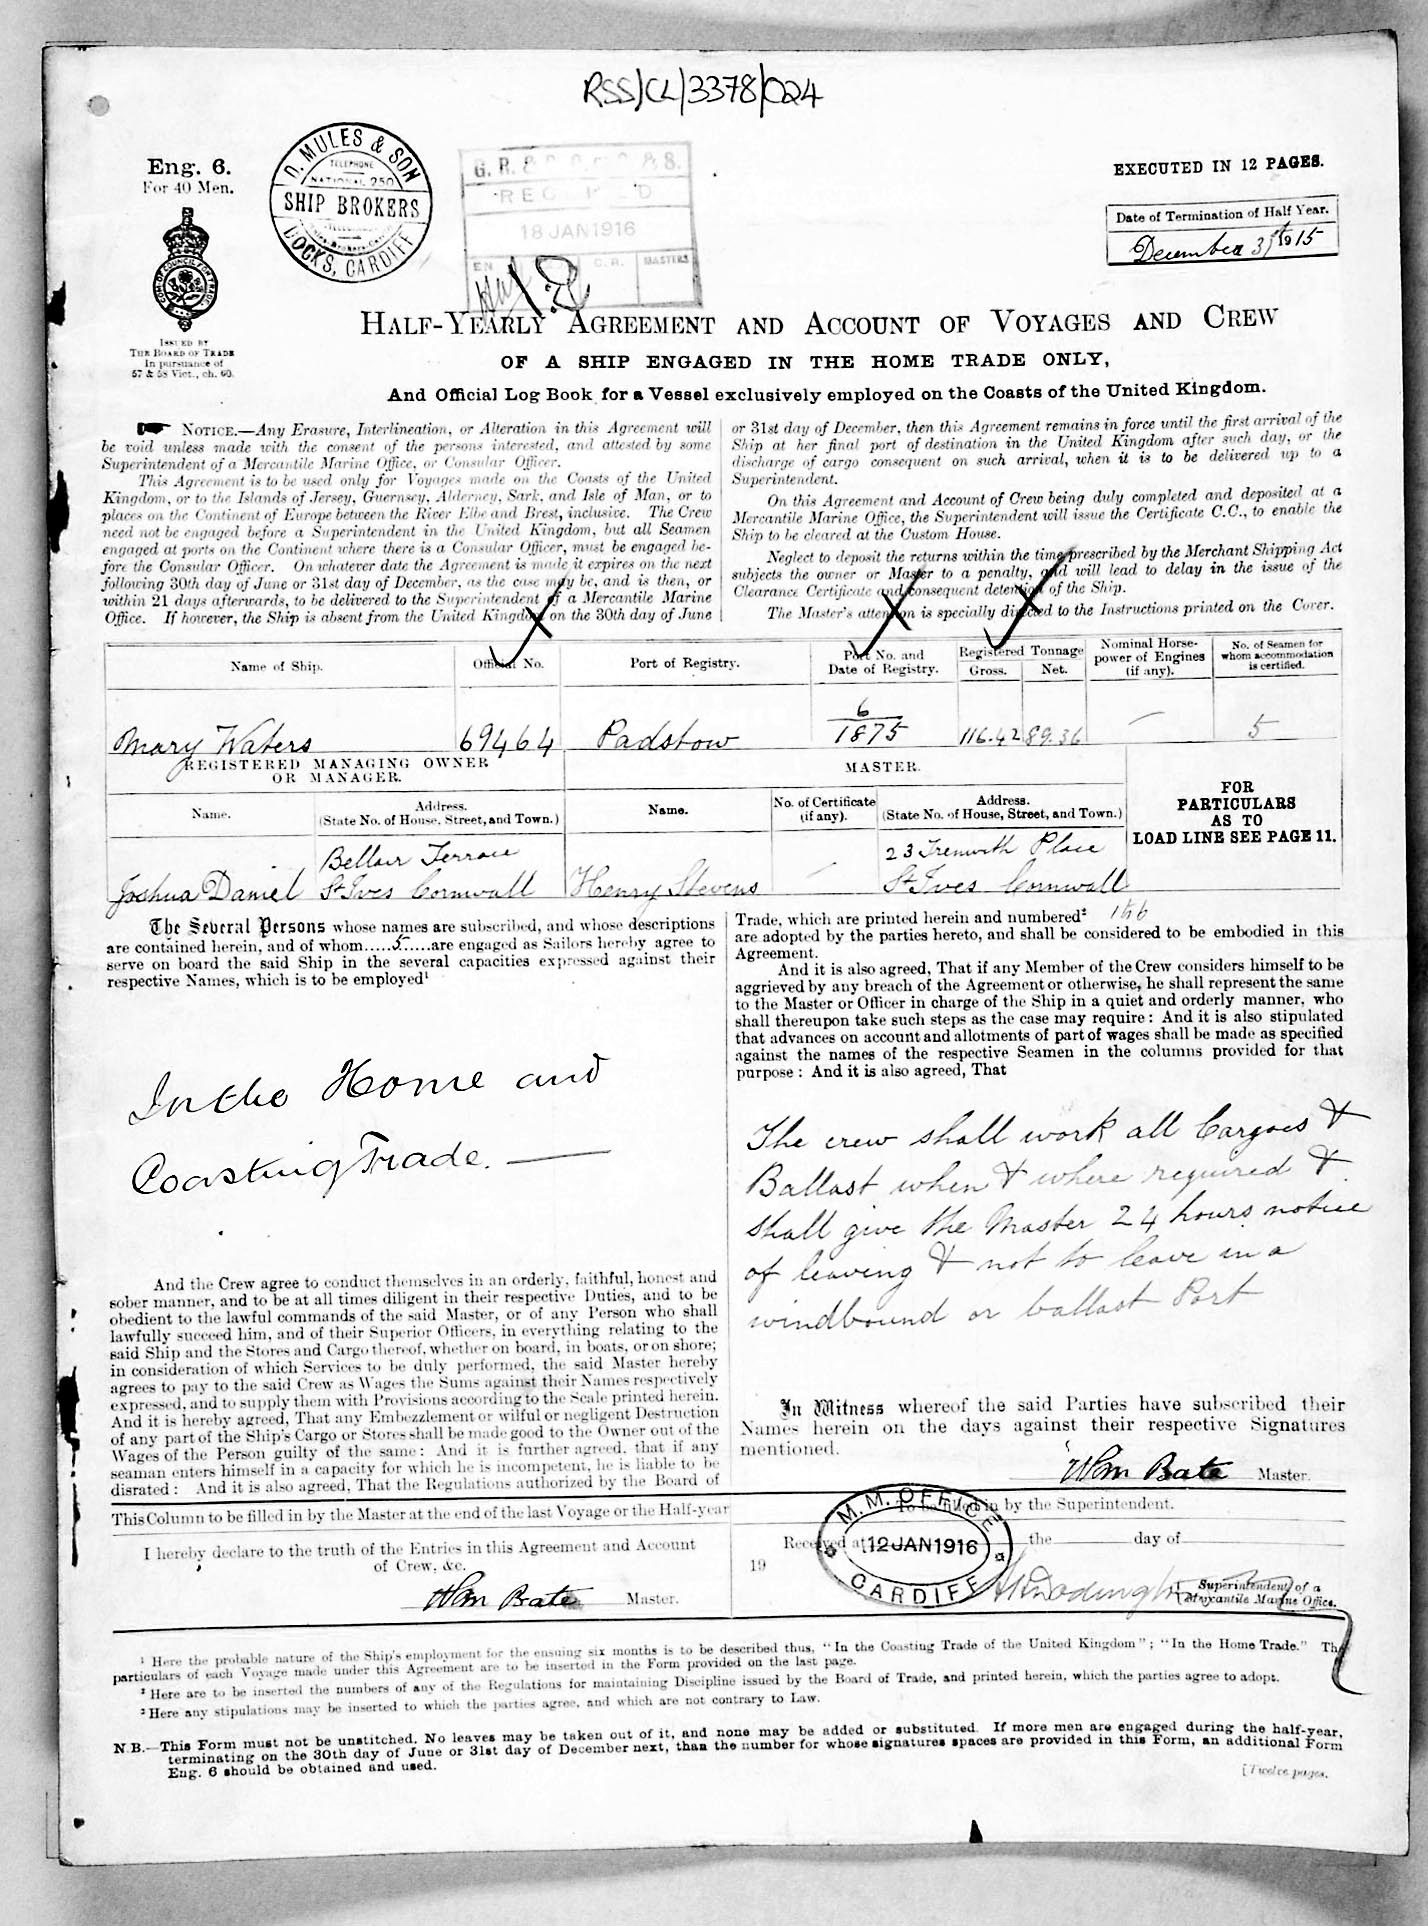 RSS/CL/3378/024
Eng. 6.
For 40 Men.
D. MULES & SON
TELEPHONE
NATIONAL 250
SHIP BROKERS
DOCKS, CARDIFF
RECEIVED
18 JAN 1916
EN
C.R.
MASTERS
EXECUTED IN 12 PAGES.
Date of Termination of Half Year.
December 31st 1915
ISSUED BY
THE BOARD OF TRADE
In pursuance of
57 & 58 Vict., ch. 60.
HALF-YEARLY AGREEMENT AND ACCOUNT OF VOYAGES AND CREW
OF A SHIP ENGAGED IN THE HOME TRADE ONLY,
And Official Log Book for a Vessel exclusively employed on the Coasts of the United Kingdom.
NOTICE.—Any Erasure, Interlineation, or Alteration in this Agreement will
be void unless made with the consent of the persons interested, and attested by some
Superintendent of a Mercantile Marine Office, or Consular Officer.
This Agreement is to be used only for Voyages made on the Coasts of the United
Kingdom, or to the Islands of Jersey, Guernsey, Alderney, Sark, and Isle of Man, or to
places on the Continent of Europe between the River Elbe and Brest, inclusive. The Crew
need not be engaged before a Superintendent in the United Kingdom, but all Seamen
engaged at ports on the Continent where there is a Consular Officer, must be engaged be-
fore the Consular Officer. On whatever date the Agreement is made it expires on the next
following 30th day of June or 31st day of December, as the case may be, and is then, or
within 21 days afterwards, to be delivered to the Superintendent of a Mercantile Marine
Office. If however, the Ship is absent from the United Kingdom on the 30th day of June
or 31st day of December, then this Agreement remains in force until the first arrival of the
Ship at her final port of destination in the United Kingdom after such day, or the
discharge of cargo consequent on such arrival, when it is to be delivered up to a
Superintendent.
On this Agreement and Account of Crew being duly completed and deposited at a
Mercantile Marine Office, the Superintendent will issue the Certificate C.C., to enable the
Ship to be cleared at the Custom House.
Neglect to deposit the returns within the time prescribed by the Merchant Shipping Act
subjects the owner or Master to a penalty, and will lead to delay in the issue of the
Clearance Certificate and consequent detention of the Ship.
The Master's attention is specially directed to the Instructions printed on the Cover.
Name of Ship.
Official No.
Port of Registry.
Port No. and
Date of Registry.
Registered Tonnage
Gross.
Net.
Nominal Horse-
power of Engines
(if any).
No. of Seamen for
whom accommodation
is certified.
Mary Waters
69464
Padstow
6
1875
116.42
89.36
—
5
REGISTERED MANAGING OWNER
OR MANAGER.
MASTER.
Name.
Address.
(State No. of House, Street, and Town.)
Name.
No. of Certificate
(if any).
Address.
(State No. of House, Street, and Town.)
FOR
PARTICULARS
AS TO
LOAD LINE SEE PAGE 11.
Joshua Daniel
Bellair Terrace
St Ives Cornwall
Henry Stevens
—
23 Trenwith Place
St Ives Cornwall
The Several Persons whose names are subscribed, and whose descriptions
are contained herein, and of whom.....5.....are engaged as Sailors hereby agree to
serve on board the said Ship in the several capacities expressed against their
respective Names, which is to be employed¹
In the Home and
Coasting Trade. —
And the Crew agree to conduct themselves in an orderly, faithful, honest and
sober manner, and to be at all times diligent in their respective Duties, and to be
obedient to the lawful commands of the said Master, or of any Person who shall
lawfully succeed him, and of their Superior Officers, in everything relating to the
said Ship and the Stores and Cargo thereof, whether on board, in boats, or on shore;
in consideration of which Services to be duly performed, the said Master hereby
agrees to pay to the said Crew as Wages the Sums against their Names respectively
expressed, and to supply them with Provisions according to the Scale printed herein.
And it is hereby agreed, That any Embezzlement or wilful or negligent Destruction
of any part of the Ship's Cargo or Stores shall be made good to the Owner out of the
Wages of the Person guilty of the same: And it is further agreed, that if any
seaman enters himself in a capacity for which he is incompetent, he is liable to be
disrated: And it is also agreed, That the Regulations authorized by the Board of
Trade, which are printed herein and numbered² 1 to 6
are adopted by the parties hereto, and shall be considered to be embodied in this
Agreement.
And it is also agreed, That if any Member of the Crew considers himself to be
aggrieved by any breach of the Agreement or otherwise, he shall represent the same
to the Master or Officer in charge of the Ship in a quiet and orderly manner, who
shall thereupon take such steps as the case may require: And it is also stipulated
that advances on account and allotments of part of wages shall be made as specified
against the names of the respective Seamen in the columns provided for that
purpose: And it is also agreed, That
The crew shall work all Cargoes &
Ballast when & where required &
shall give the Master 24 hours notice
of leaving & not to leave in a
windbound or ballast Port
In Witness whereof the said Parties have subscribed their
Names herein on the days against their respective Signatures
mentioned.
Wm Bate Master.
This Column to be filled in by the Master at the end of the last Voyage or the Half-year
I hereby declare to the truth of the Entries in this Agreement and Account
of Crew, &c.
Wm Bate Master.
To be filled in by the Superintendent.
Received at the day of
19
M.M. OFFICE
12 JAN 1916
CARDIFF
Superintendent of a
Mercantile Marine Office.
¹ Here the probable nature of the Ship's employment for the ensuing six months is to be described thus, "In the Coasting Trade of the United Kingdom"; "In the Home Trade." The
particulars of each Voyage made under this Agreement are to be inserted in the Form provided on the last page.
² Here are to be inserted the numbers of any of the Regulations for maintaining Discipline issued by the Board of Trade, and printed herein, which the parties agree to adopt.
³ Here any stipulations may be inserted to which the parties agree, and which are not contrary to Law.
N.B.—This Form must not be unstitched. No leaves may be taken out of it, and none may be added or substituted. If more men are engaged during the half-year,
terminating on the 30th day of June or 31st day of December next, than the number for whose signatures spaces are provided in this Form, an additional Form
Eng. 6 should be obtained and used.
[Twelve pages.